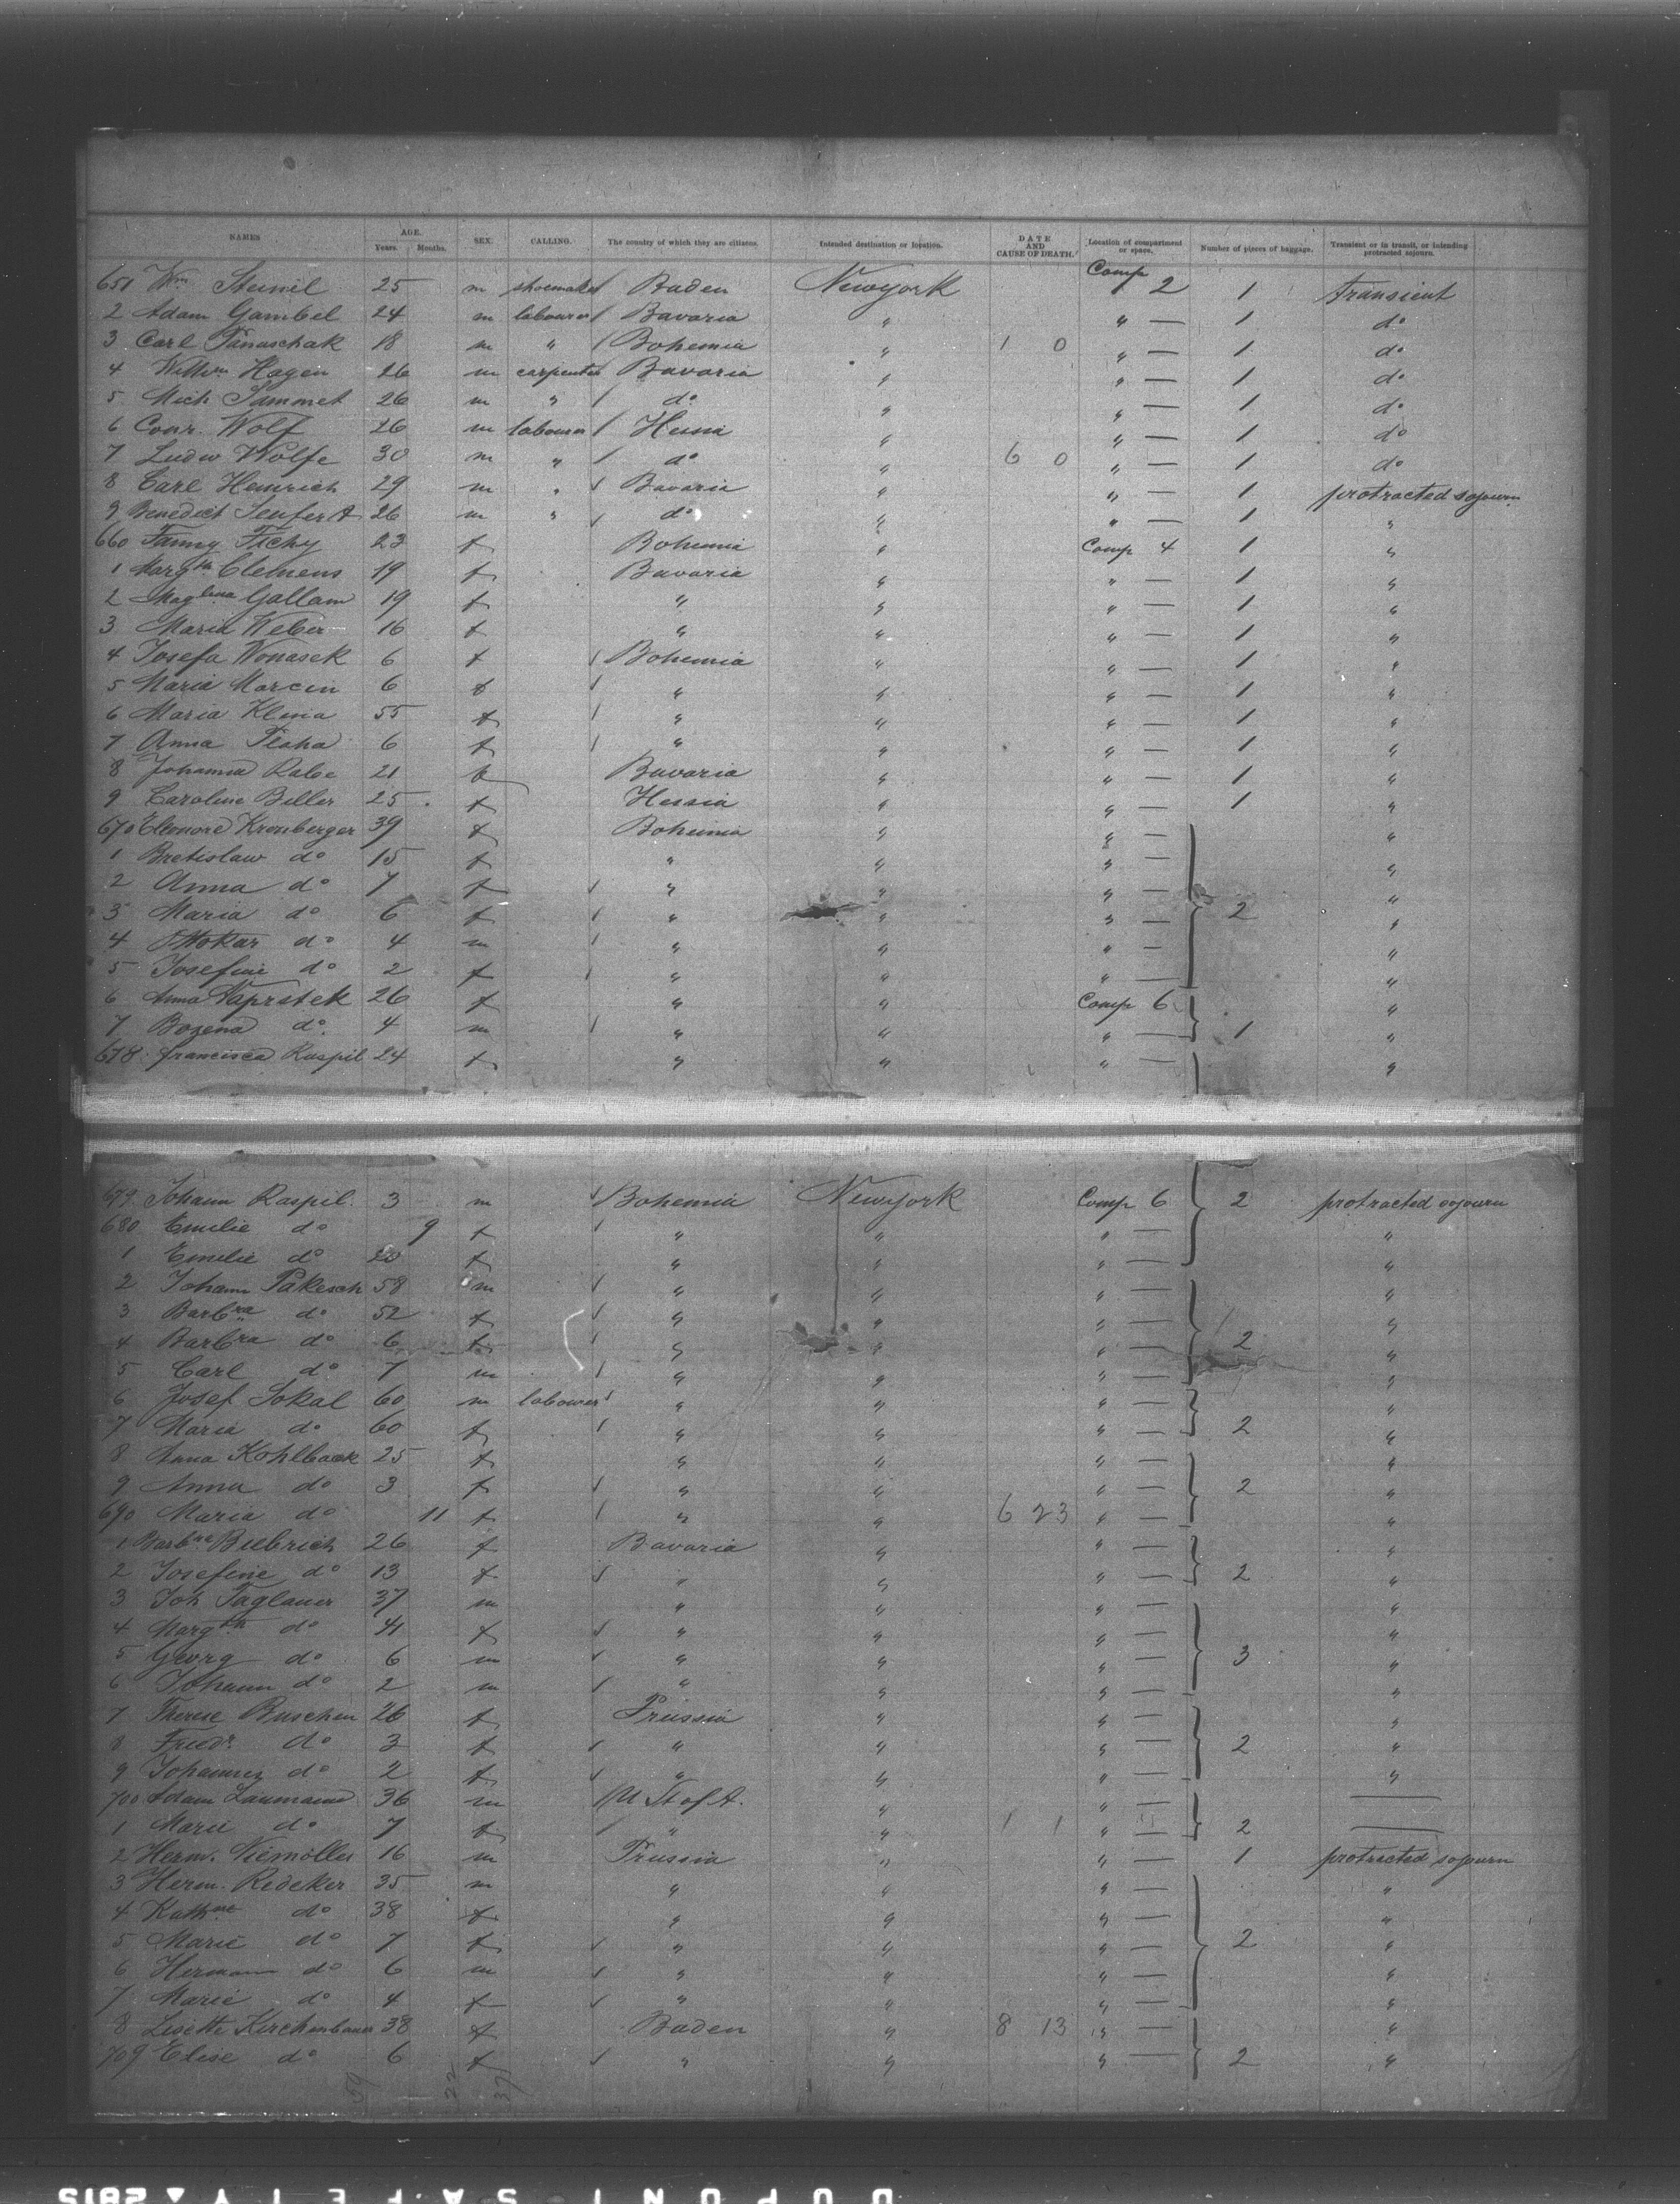 NAMES AGE. Years. Months. SEX. CALLING. The country of which they are citizens. Intended destination or location. DATE AND CAUSE OF DEATH. Location of compartment or space. Number of pieces of baggage. Transient or in transit, or intending protracted sojourn.
651 Wm 25 m shoemaker Baden Newyork Comp 2 1 transient
2 Adam Gambel 24 m labourer Bavaria " " — 1 do
3 Carl Panaschak 18 m " Bohemia " 1 0 " — 1 do
4 Willm Hagen 26 m carpenter Bavaria " " — 1 do
5 Mich Sammet 26 m " do " " — 1 do
6 Conr. Wolf 26 m labourer Hessia " " — 1 do
7 Ludw Wolfe 30 m " do " 6 0 " — 1 do
8 Carl Heinrich 29 m " Bavaria " " — 1 protracted sojourn
9 Benedict Seufert 26 m " do " " — 1 "
660 Fanny Tichy 23 f Bohemia " Comp 4 1 "
1 Margth Clemens 19 f Bavaria " " — 1 "
2 Maglena Gallam 19 f " " " — 1 "
3 Maria Weber 16 f " " " — 1 "
4 Josefa Wonasek 6 f Bohemia " " — 1 "
5 Maria Marcin 6 f " " " — 1 "
6 Maria Klima 55 f " " " — 1 "
7 Anna 6 f " " " — 1 "
8 Johanna Rabe 21 f Bavaria " " — 1 "
9 Caroline Beller 25 f Hessia " " — 1 "
670 Eleonore Kronberger 39 f Bohemia " " — "
1 Bretislaw do 15 f " " " — "
2 Anna do 7 f " " " — "
3 Maria do 6 f " " " — 2 "
4 Ottokar do 4 m " " " — "
5 Josefine do 2 f " " " — "
6 Anna Naprstek 26 f " " Comp 6 "
7 Bozena do. 4 m " " " — 1 "
678. francisca Raspil 24 f " " " — "
679 Johann Raspil. 3 m Bohemia Newyork Comp 6 2 protracted sojourn
680 Emilie do 9 f " " " — "
1 Emilie do 20 f " " " — "
2 Johann Pakesch 58 m " " " — "
3 Barbra do 52 f " " " — "
4 Barbra do 6 f " " " — 2 "
5 Carl do 7 m " " " — "
6 Josef Sokal 60 m labourer " " " — "
7 Maria do 60 f " " " — 2 "
8 Anna Kohlback 25 f " " " — "
9 Anna do 3 f " " " — 2 "
690 Maria do 11 f " " 6 23 " — "
1 Barbra Biebrich 26 f Bavaria " " — "
2 Josefine do 13 f " " " — 2 "
3 Joh Taglauer 37 m " " " — "
4 Margth do 41 f " " " — "
5 Georg do 6 m " " " — 3 "
6 Johann do 2 m " " " — "
7 Therese Buschen 26 f Prussia " " — "
8 Friedr. do 3 f " " " — 2 "
9 do 2 f " " " — "
700 Adam Laumann 36 m U St of A. " " — —
1 Marie do 7 f " " 1 1 " — 2 —
2 Herm. Niemöller 16 m Prussia " " — 1 protracted sojourn
3 Herm. Redeker 35 m " " " — "
4 Kathne do 38 f " " " — "
5 Marie do 7 f " " " — 2 "
6 Hermann do 6 m " " " — "
7 Marie do 4 f " " " — "
8 Lisette Kirchenbauer 38 f Baden " 8 13 " — "
709 Elise do 6 f " " " — 2 "
59 22 37
DUPONT SAFETY ▲ 2815